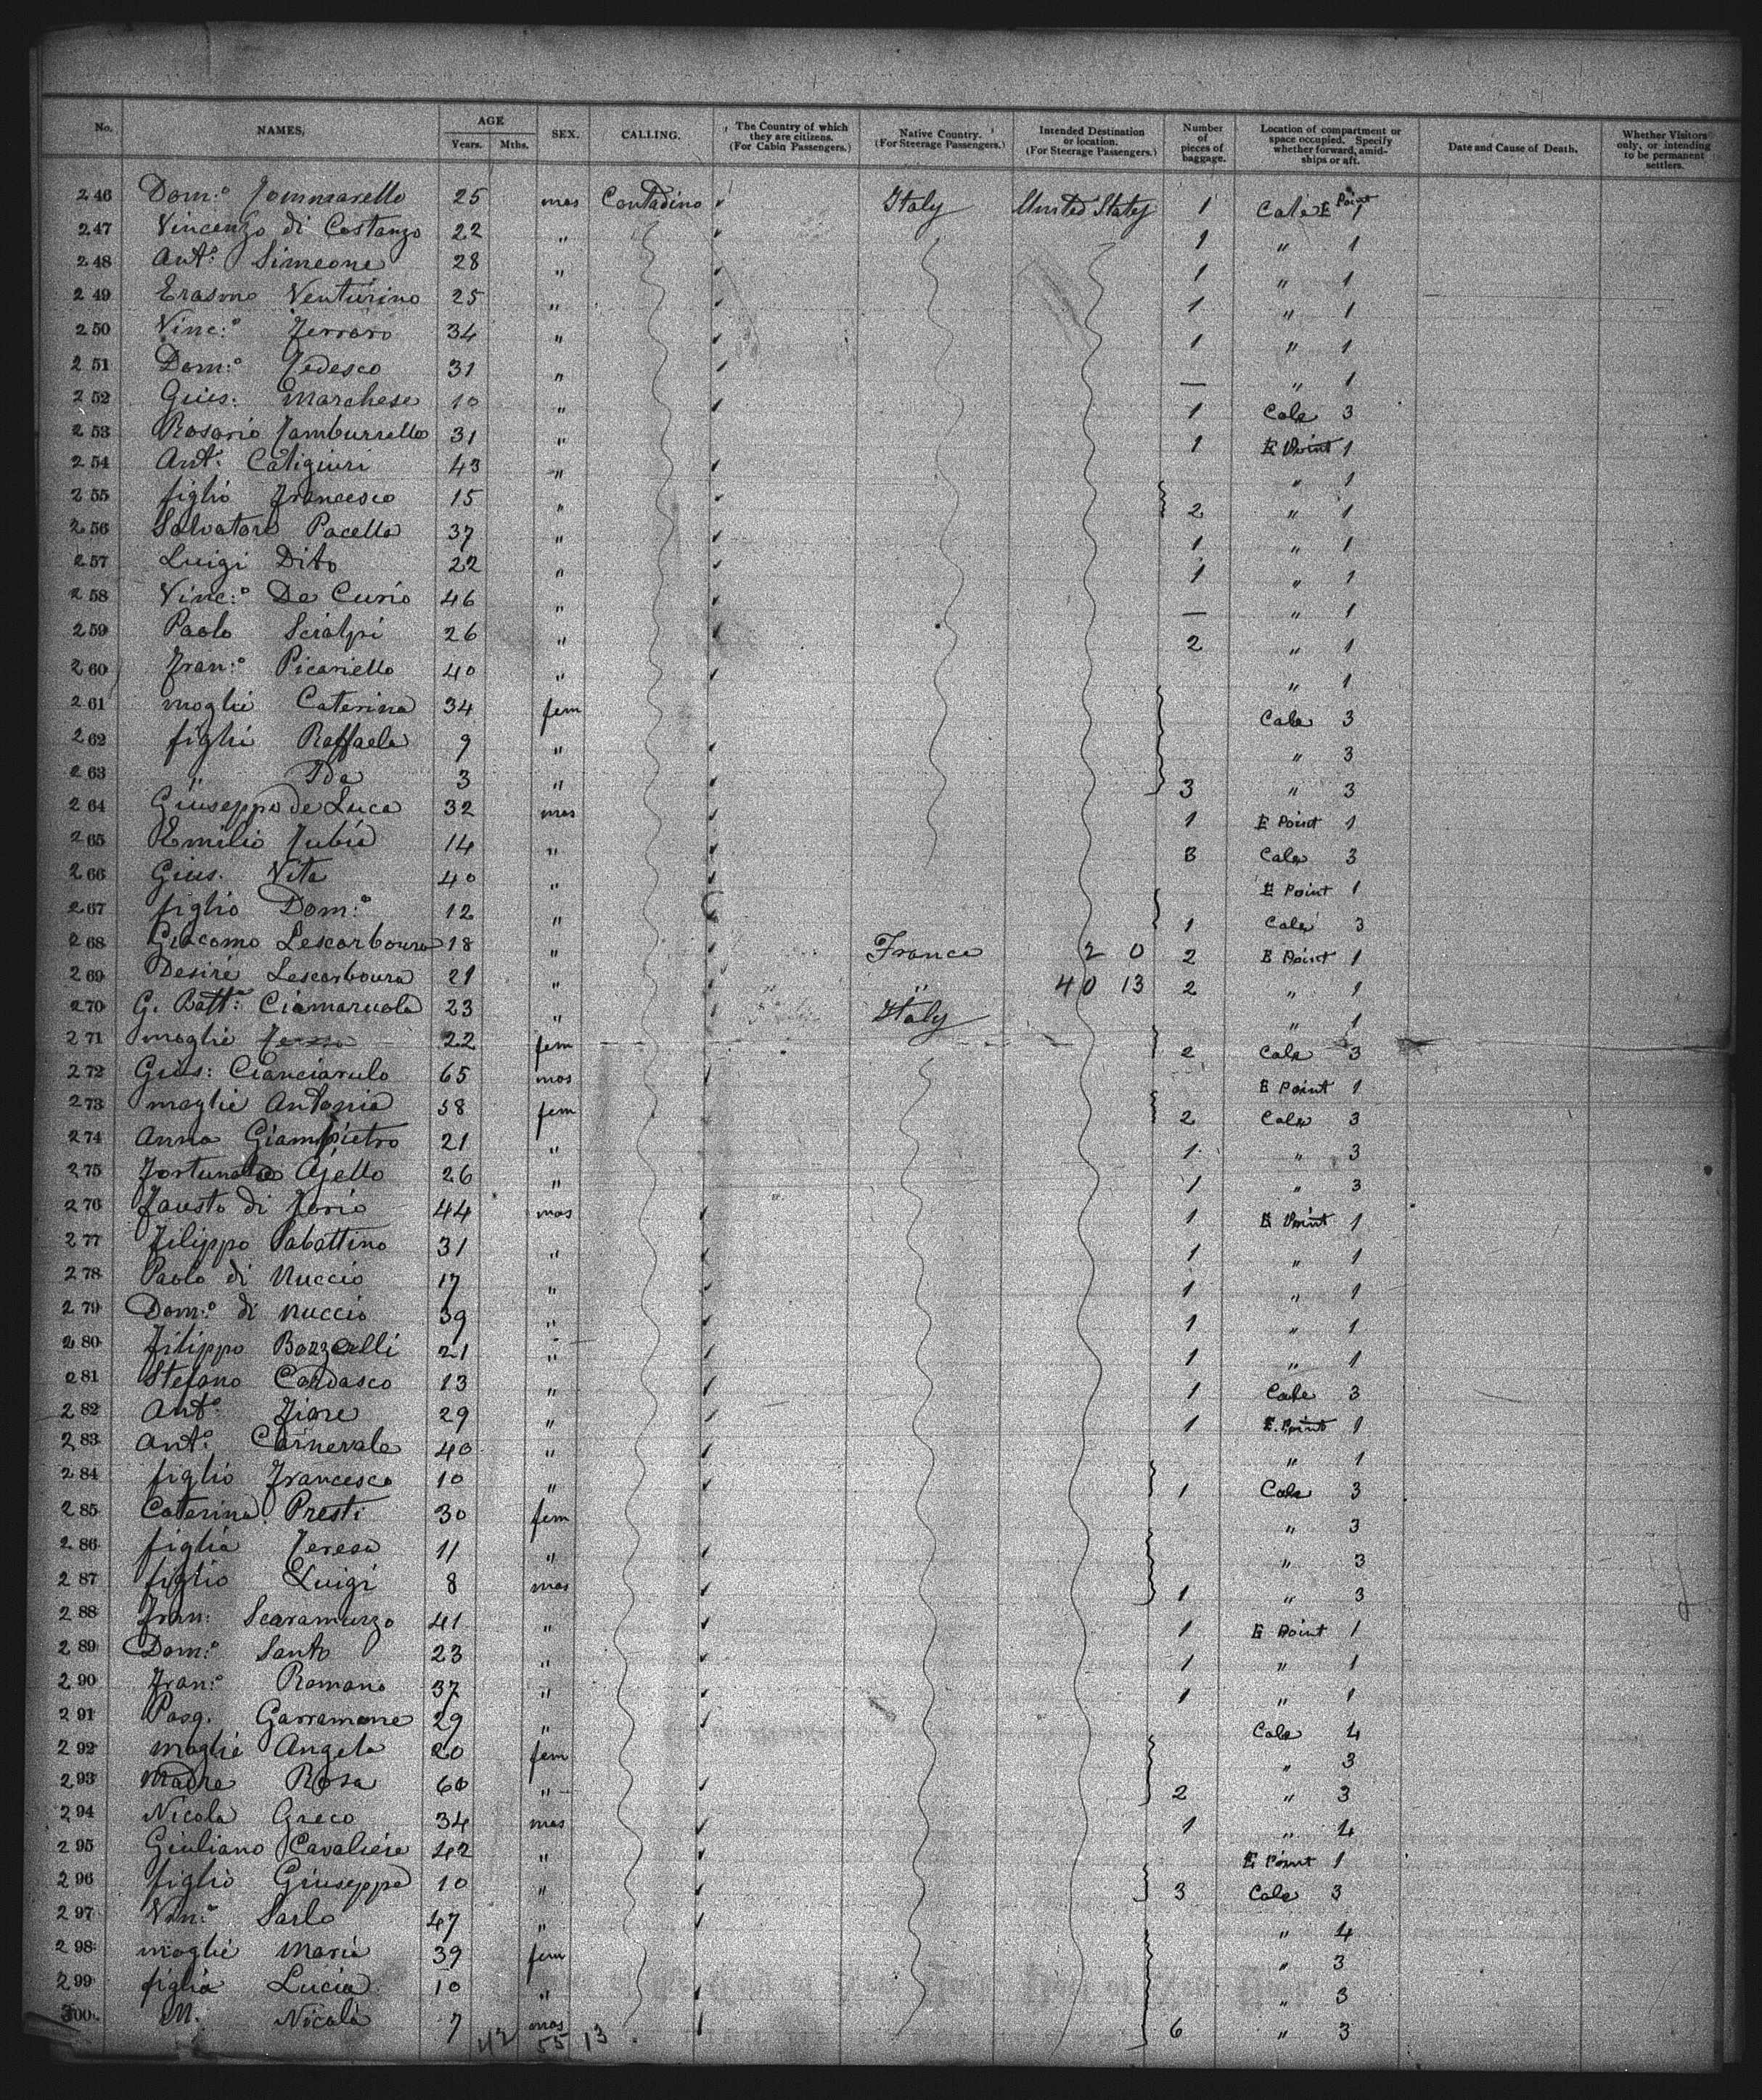 No. NAMES, AGE Years. Mths. SEX. CALLING. The Country of which they are citizens. (For Cabin Passengers.) Native Country. (For Steerage Passengers.) Intended Destination or location. (For Steerage Passengers.) Number of pieces of baggage. Location of compartment or space occupied. Specify whether forward, amidships or aft. Date and Cause of Death. Whether Visitors only, or intending to be permanent settlers.
246 Dom:o Tommasello 25 mas Contadino Italy United States 1 Cale E Point 1
247 Vincenzo di Costanzo 22 " 1 " 1
248 Ant:o Simeone 28 " 1 " 1
249 Erasmo Venturino 25 " 1 " 1
250 Vinc:o Ferraro 34 " 1 " 1
251 Dom:o Tedesco 31 " — " 1
252 Gius: Marchese 10 " 1 Cale 3
253 Rosario Tamburrello 31 " 1 E Point 1
254 Ant: Caligiuri 43 " " 1
255 figlio Francesco 15 " 2 " 1
256 Salvatore Pacella 37 " 1 " 1
257 Luigi Dito 22 " 1 " 1
258 Vinc:o De Curio 46 " — " 1
259 Paolo Scialpi 26 " 2 " 1
260 Fran:o Picariello 40 " " 1
261 moglie Caterina 34 fem Cale 3
262 figli Raffaela 9 " " 3
263 " Ida 3 " 3 " 3
264 Giuseppe de Luca 32 mas 1 E Point 1
265 Emilio Fubia 14 " 3 Cale 3
266 Gius. Vita 40 " E Point 1
267 figlio Dom:o 12 " 1 Cale 3
268 Giacomo Lescarboura 18 " France 2 0 2 E Point 1
269 Desiré Lescarboura 21 " " 40 13 2 " 1
270 G. Batt:a Ciamaruola 23 " Italy " 1
271 moglie 22 fem 2 Cale 3
272 Gius: Cianciarulo 65 mas E Point 1
273 moglie Antonia 58 fem 2 Cale 3
274 Anna Giampietro 21 " 1 " 3
275 Fortunata Ajello 26 " 1 " 3
276 Fausto di Iorio 44 mas 1 E Point 1
277 Filippo Sabattino 31 " 1 " 1
278 Paolo di Nuccio 17 " 1 " 1
279 Dom:o di Nuccio 39 " 1 " 1
280 Filippo Bozzelli 21 " 1 " 1
281 Stefano Cardasco 13 " 1 Cale 3
282 Ant:o Fiore 29 " 1 E. Point 1
283 Ant:o Carnevale 40 " " 1
284 figlio Francesco 10 " 1 Cale 3
285 Caterina Presti 30 fem " 3
286 figlia Teresa 11 " " 3
287 figlio Luigi 8 mas 1 " 3
288 Fran: Scaramuzzo 41 " 1 E Point 1
289 Dom:o Santo 23 " 1 " 1
290 Fran:o Romano 37 " 1 " 1
291 Pasq. Garramone 29 " Cale 4
292 moglie Angela 20 fem " 3
293 Madre Rosa 60 " 2 " 3
294 Nicola Greco 34 mas 1 " 4
295 Giuliano Cavaliere 42 " E Point 1
296 figlio Giuseppe 10 " 3 Cale 3
297 Vin:o Sarlo 47 " " 4
298 moglie Maria 39 fem " 3
299 figlia Lucia 10 " " 3
300 M. Nicola 7 mas 6 " 3
42 55 13